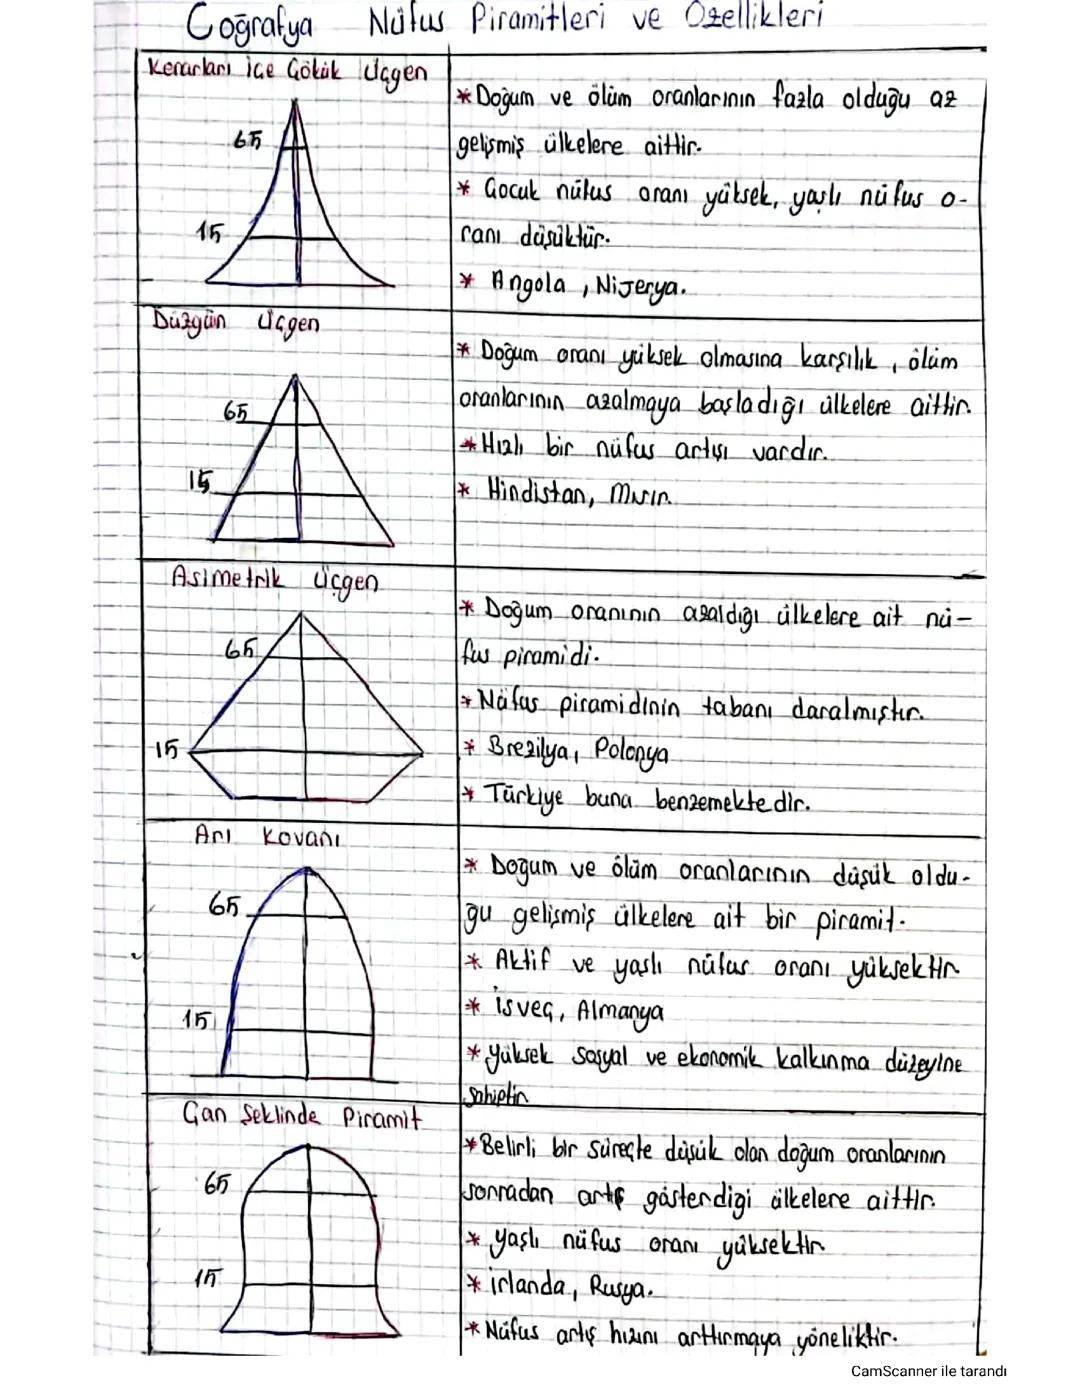 Coğrafya Nüfus Piramitleri ve Özellikleri
Kenarları İçe Çökük Üçgen
65
15
* Doğum ve ölüm oranlarının fazla olduğu az
gelişmiş ülkelere aittir.
* Çocuk nüfus oranı yüksek, yaşlı nüfus o-
ranı düşüktür.
* Angola, Nijerya.
Düzgün Üçgen
65
15
* Doğum oranı yüksek olmasına karşılık, ölüm
oranlarının azalmaya başladığı ülkelere aittir.
* Hızlı bir nüfus artışı vardır.
* Hindistan, Mısır.
Asimetrik Üçgen
65
15
* Doğum oranının azaldığı ülkelere ait nü-
fus piramidi.
* Nüfus piramidinin tabanı daralmıştır.
* Brezilya, Polonya
* Türkiye buna benzemektedir.
Arı Kovanı
65
15
* Doğum ve ölüm oranlarının düşük oldu-
ğu gelişmiş ülkelere ait bir piramit.
* Aktif ve yaşlı nüfus oranı yüksektir.
* İsveç, Almanya
* Yüksek sosyal ve ekonomik kalkınma düzeyine
sahiptir.
Çan Şeklinde Piramit
65
15
* Belirli bir süreçte düşük olan doğum oranlarının
sonradan artış gösterdiği ülkelere aittir.
* Yaşlı nüfus oranı yüksektir.
* İrlanda, Rusya.
* Nüfus artış hızını arttırmaya yöneliktir.
CamScanner ile tarandı